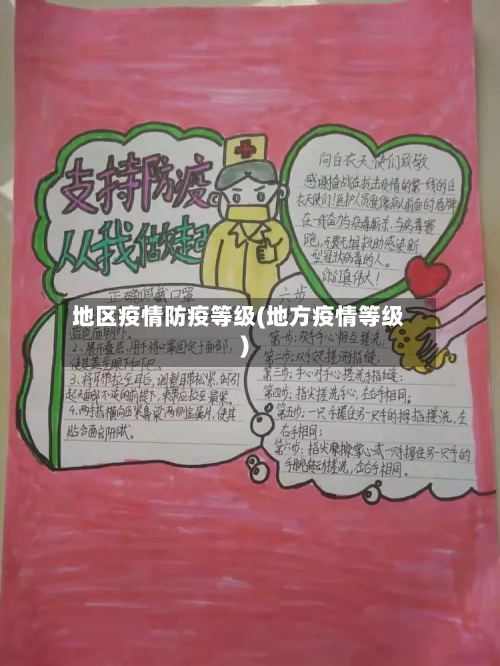 支持防疫
从我做起
向白衣天使们致敬
感谢奋战在抗击疫情的第一线的白
衣天使们!医护人员变身病人前面的盾牌
在一线奋力与病毒厮杀,与病毒赛
跑,无畏无惧救助感染新
型冠状病毒的人。
你们真伟大!
正确佩戴口罩
地区疫情防疫等级(地方疫情等级
)
蓝色面朝外。
2、展开叠层,用手将口罩固定于面部,
使其盖至眼下和下巴。
4、两指横向压紧鼻梁两侧金属片,使其
贴合面容防线。
六步
第一步:双手手心相互搓洗,
第二步:双手交叉搓洗指缝;
第三步:手心对手心搓洗手指缝;
第四步:指尖搓洗手心,左右手相同。
第五步:一只手握住另一只手的拇指搓洗,左
右手相同;
第六步:指尖摩擦掌心或一只手握住另一只手的
手腕转动搓洗,左右手相同。